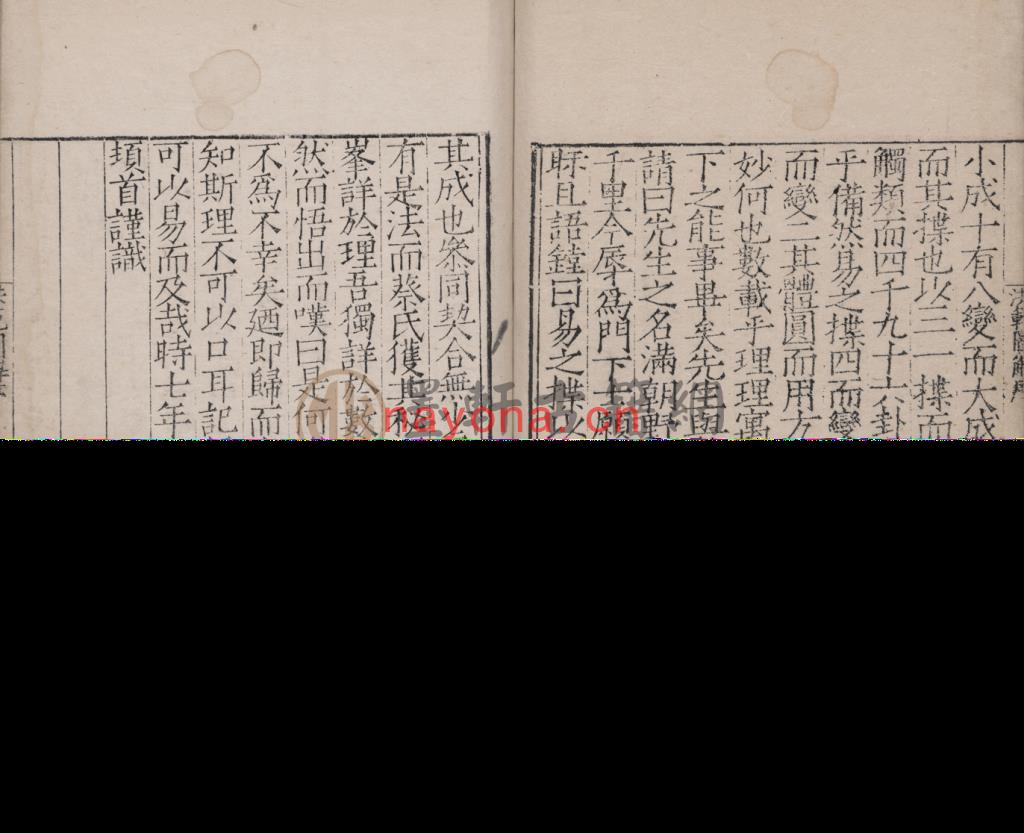 小成十有八變而大成
而其揲也以三一揲而
觸類而四千九十六卦
乎備然易之揲四而變
而變二其體圓而用方
妙何也數載乎理理寓
下之能事畢矣先生與
請曰先生之名滿朝野
千里今辱為門下士願
眎且語鏜曰易之揲以
其成也叅同契合無
有是法而蔡氏獲其秘
峯詳於理吾獨詳於數
然而悟出而嘆曰是何
不為不幸矣廼即歸而
知斯理不可以口耳記
可以易而及哉時七年
頊首謹識
墨軒古籍網
nayona.cn